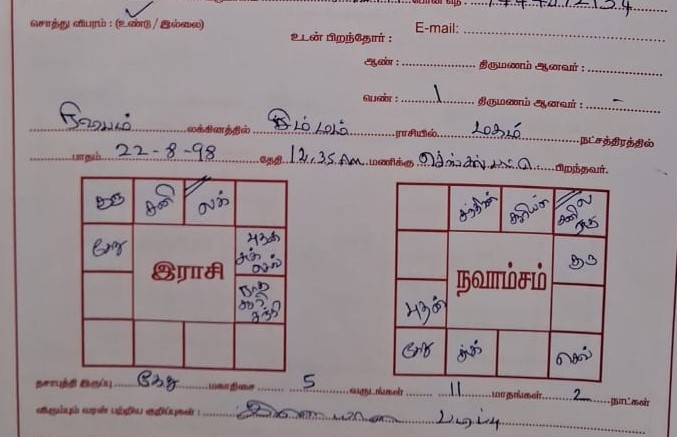 போன் எண் :
சொத்து விபரம் : (உண்டு / இல்லை)
உடன் பிறந்தோர் : E-mail:
ஆண் : திருமணம் ஆனவர் :
பெண் : 1 திருமணம் ஆனவர் : -
ரிஷபம் லக்கினத்தில் சிம்மம் ராசியில் மகம் நட்சத்திரத்தில்
பாதம் 22-8-98 தேதி 12.35 AM மணிக்கு செங்கல்பட்டு பிறந்தவர்.
குரு சனி லக்
கேது
புதன் சுக் செவ்
இராசி
ராகு சூரி சந்தி
சந்திரன் சூரியன் சனி ல ராகு
குரு
நவாம்சம்
புதன்
கேது சுக் செவ்
தசாபுத்தி இருப்பு கேது மகாதிசை 5 வருடங்கள் 11 மாதங்கள் 2 நாட்கள்
விரும்பும் வரன் பற்றிய குறிப்புகள் : இணையான படிப்பு